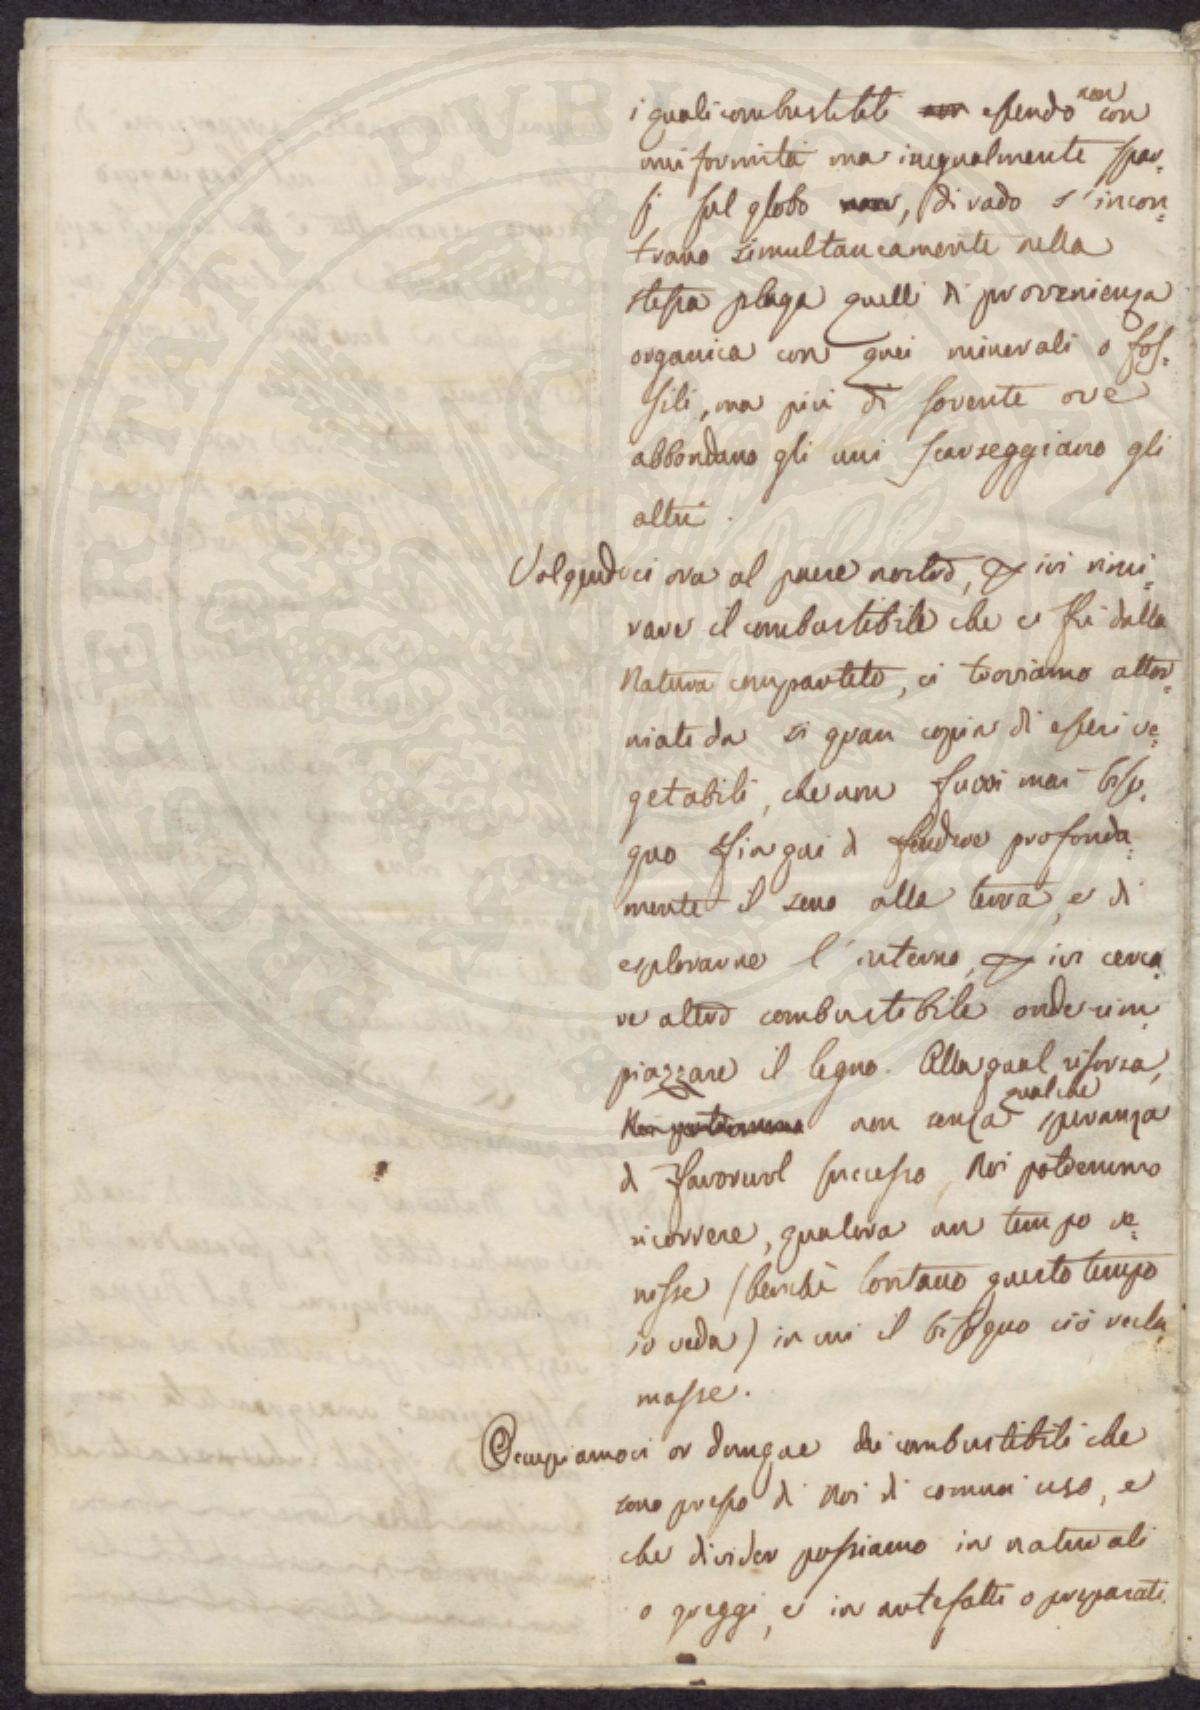 i quali combustibili non essendo non con
uniformità ma inegualmente spar-
si sul globo non, di rado s'incon-
trano simultaneamente nella
stessa plaga quelli di provenienza
organica con quei minerali o fos-
sili, ma più di sovente ove
abbondano gli uni scarseggiano gli
altri.
Volgendoci ora al paese nostro, ivi rimi-
rare il combustibile che ci fu dalla
Natura compartito, ci troviamo attor-
niati da sì gran copia di esseri ve-
getabili, che non fuvvi mai biso-
gno fin qui di fendere profonda-
mente il seno alla terra, e di
esplorarne l'interno, ivi cerca-
re altro combustibile onde rim-
piazzare il legno. Alla qual risorsa,
Noi potremmo non senza qualche speranza
di favorevol successo, Noi potremmo
ricorrere, qualora un tempo ve-
nisse (benchè lontano questo tempo
io veda) in cui il bisogno ciò recla-
masse.
Occupiamoci or dunque dei combustibili che
sono presso di Noi di comun uso, e
che divider possiamo in naturali
o greggi, e in artefatti o preparati.
PROSPERITATI PVBLICAE